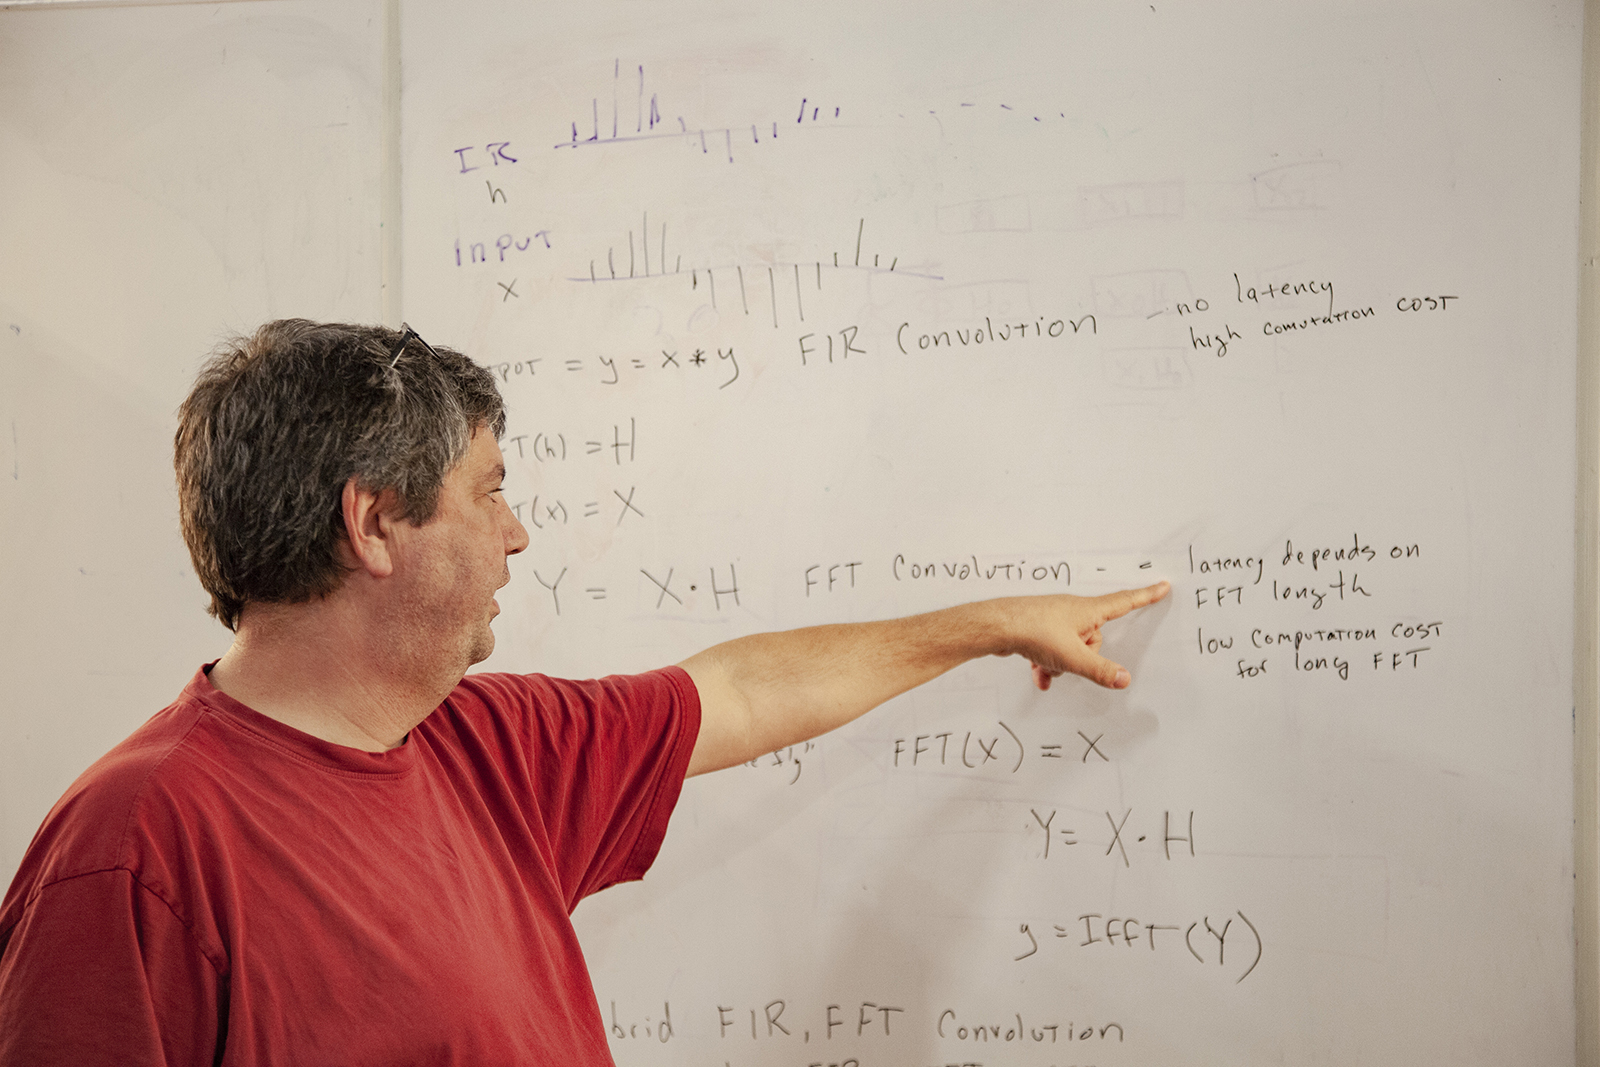 IR
h
INPUT
x
PUT = y = x * y FIR Convolution - no latency
high comutation cost
T(h) = H
T(x) = X
Y = X · H FFT Convolution - = latency depends on
FFT length
low computation cost
for long FFT
FFT(x) = X
Y = X · H
y = IFFT(Y)
brid FIR, FFT Convolution